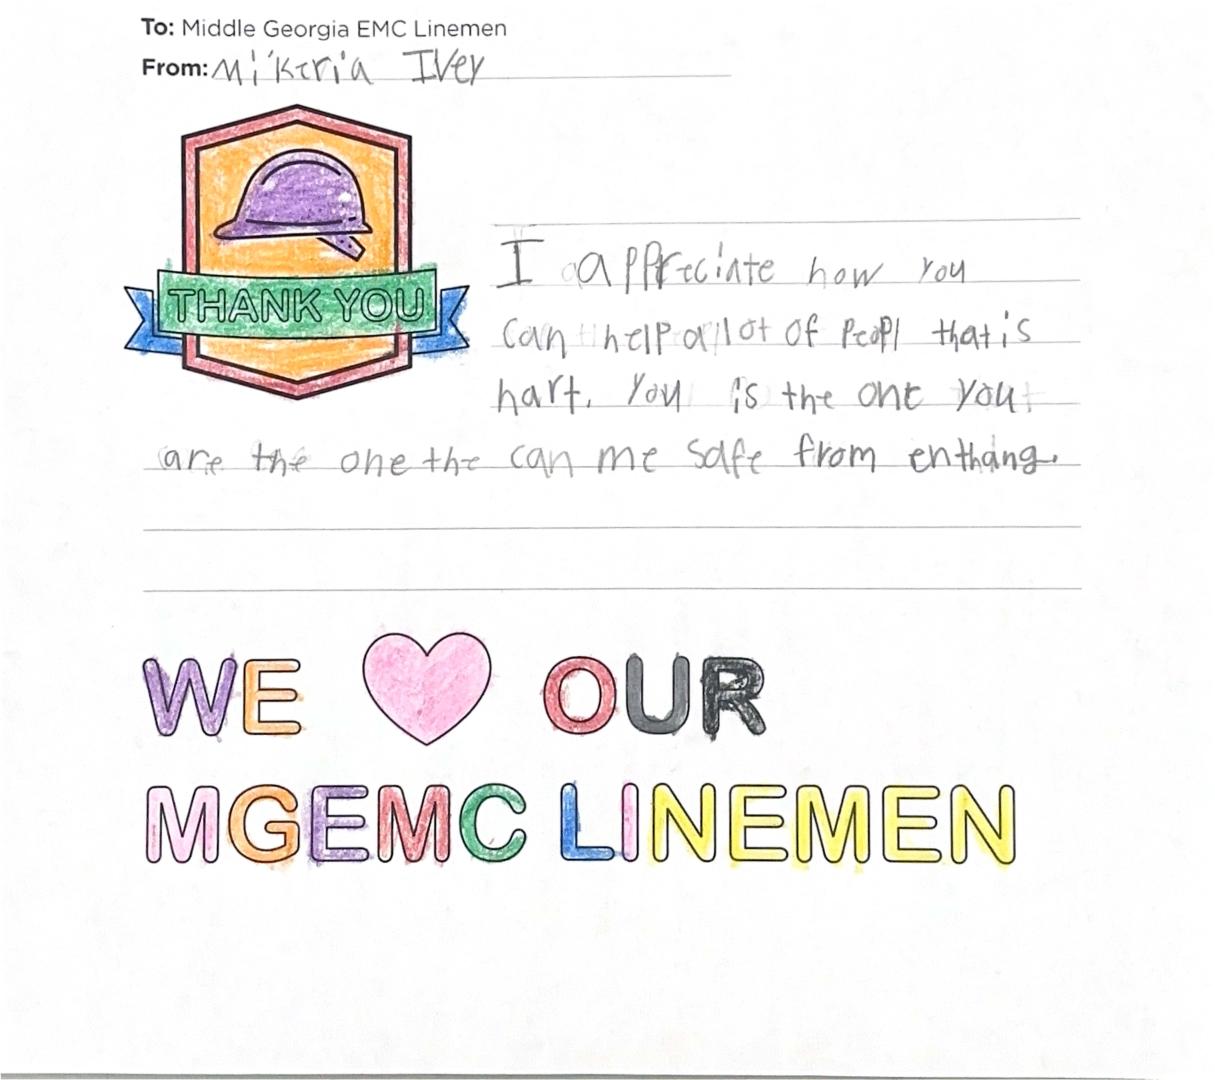 To: Middle Georgia EMC Linemen
From: Mi'Keria Ivey
THANK YOU
I appreciate how you
can help a lot of peopl that is
hart. You is the one you
are the one the can me safe from enthang.
WE OUR
MGEMC LINEMEN